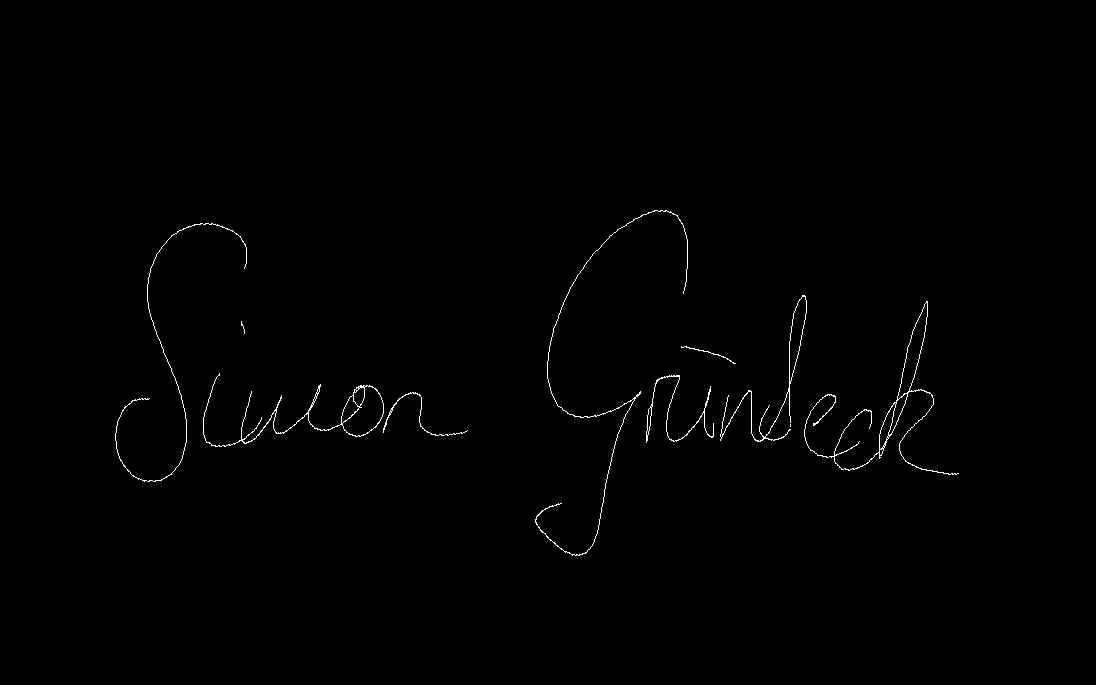 Simon Gründeck